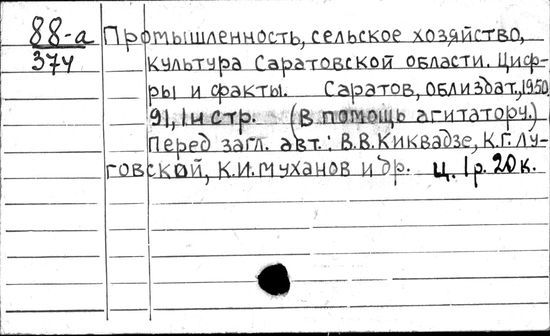 88-а Промышленность, сельское хозяйство,
374 культура Саратовской области. Циф-
ры и факты. Саратов, облиздат, 1950
91, 1н стр. (В помощь агитатору.)
Перед загл. авт.: В.В. Киквадзе, К.Г. Лу-
говской, К.И. Муханов и др. ц. 1р. 20к.